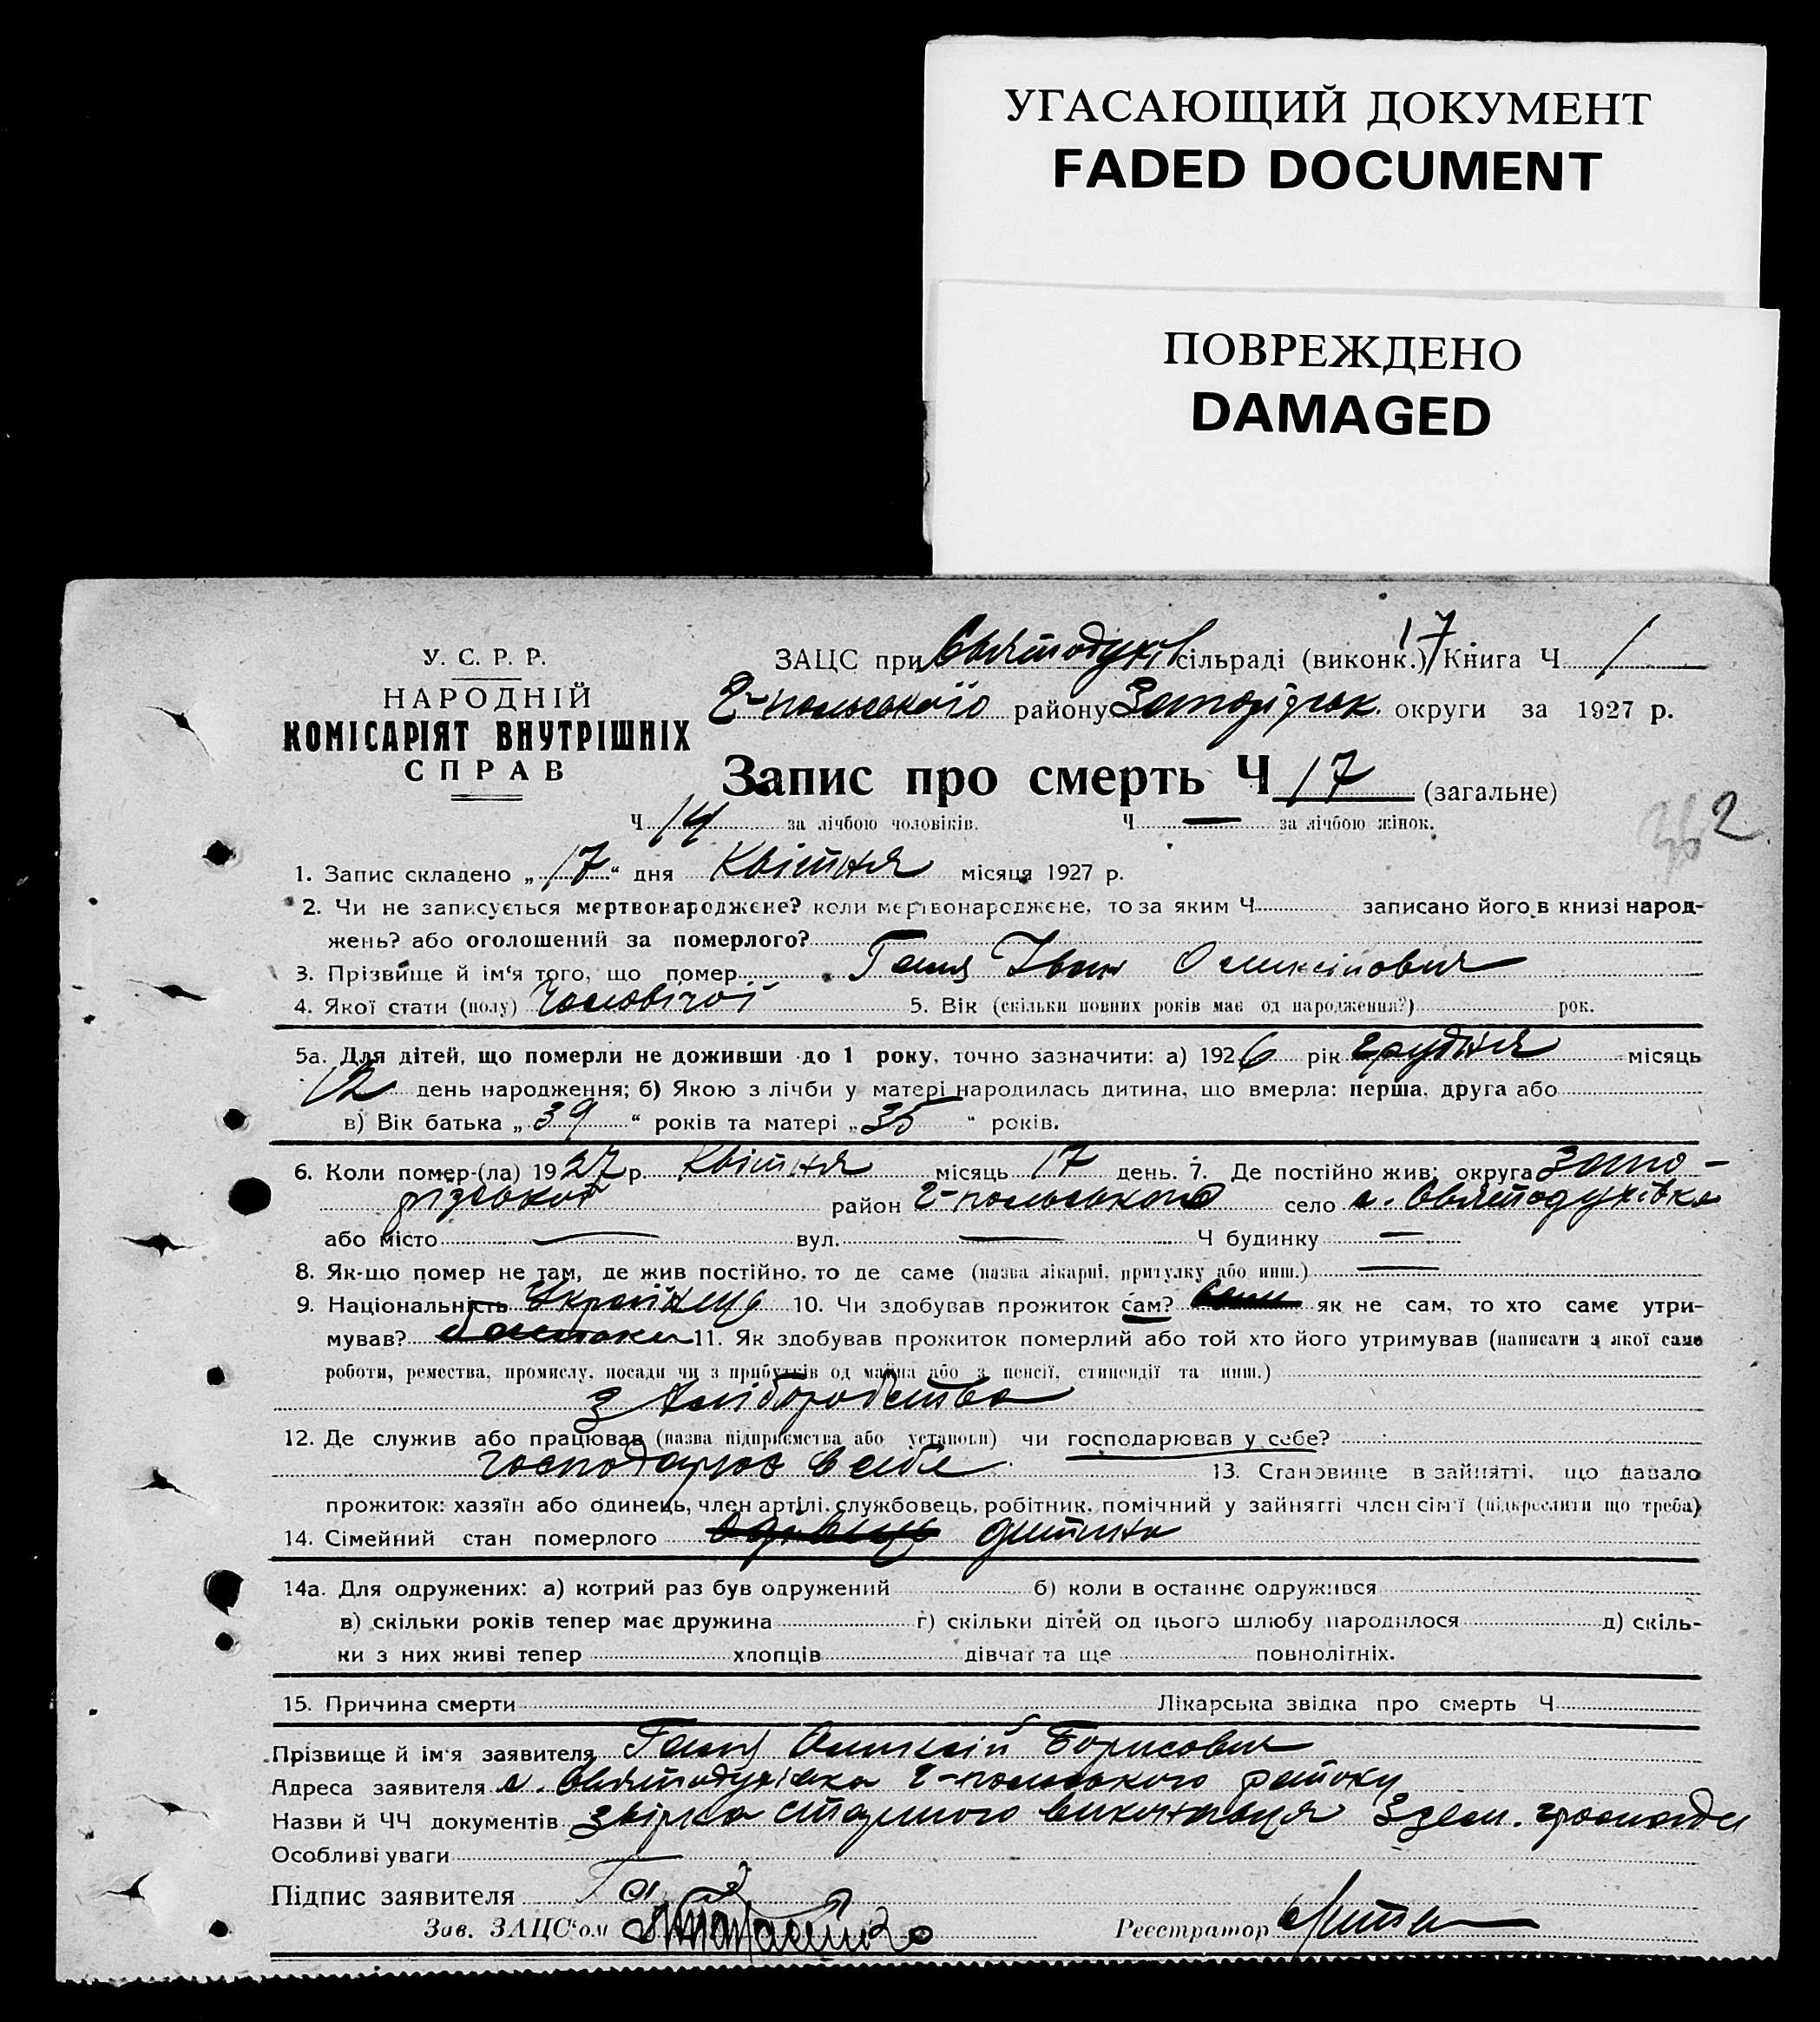 УГАСАЮЩИЙ ДОКУМЕНТ
FADED DOCUMENT
ПОВРЕЖДЕНО
DAMAGED
У. С. Р. Р.
НАРОДНІЙ
КОМІСАРІЯТ ВНУТРІШНІХ
СПРАВ
17
ЗАЦС при Святодухів сільраді (виконк.) Книга Ч 1
Г-польського району Запоріжськ. округи за 1927 р.
Запис про смерть Ч 17 (загальне)
Ч 14 за лічбою чоловіків. Ч — за лічбою жінок.
2
1. Запис складено „ 17 “ дня Квітня місяця 1927 р.
2. Чи не записується мертвонароджене? коли мертвонароджене, то за яким Ч записано його в книзі народ-
жень? або оголошений за померлого?
3. Прізвище й ім'я того, що помер Гащ Іван Олексійович
4. Якої стати (полу) Чоловічої 5. Вік (скільки повних років має од народження?) рок.
5а. Для дітей, що померли не доживши до 1 року, точно зазначити: а) 1926 рік грудня місяць
12 день народження; б) Якою з лічби у матері народилась дитина, що вмерла: перша, друга або
в) Вік батька „ 39 “ років та матері „ 35 “ років.
6. Коли помер-(ла) 1927 р. Квітня місяць 17 день. 7. Де постійно жив: округа Запо-
різської район Г-польського село с. Святодухівка
або місто — вул. — Ч будинку —
8. Як-що помер не там, де жив постійно, то де саме (назва лікарні, притулку або инш.) —
9. Національність Українець 10. Чи здобував прожиток сам? як не сам, то хто саме утри-
мував? 11. Як здобував прожиток померлий або той хто його утримував (написати з якої саме
роботи, ремества, промислу, посади чи з прибутків од майна або з пенсії, стипендії та инш.)
з хліборобства
12. Де служив або працював (назва підприємства або установи) чи господарював у себе?
господарює в себе 13. Становище в зайнятті, що давало
прожиток: хазяїн або одинець, член артілі, службовець, робітник, помічний у зайнятті член сім'ї (підкреслити що треба)
14. Сімейний стан померлого дитина
14а. Для одружених: а) котрий раз був одружений б) коли в останнє одружився
в) скільки років тепер має дружина г) скільки дітей од цього шлюбу народилося д) скіль-
ки з них живі тепер хлопців дівчат та ще повнолітніх.
15. Причина смерти Лікарська звідка про смерть Ч
Прізвище й ім'я заявителя Гащ Олексій Борисович
Адреса заявителя с. Святодухівка Г-польського району
Назви й ЧЧ документів звірка старшого виконавця з зем. громади
Особливі уваги —
Підпис заявителя
Зав. ЗАЦС'ом Реєстратор